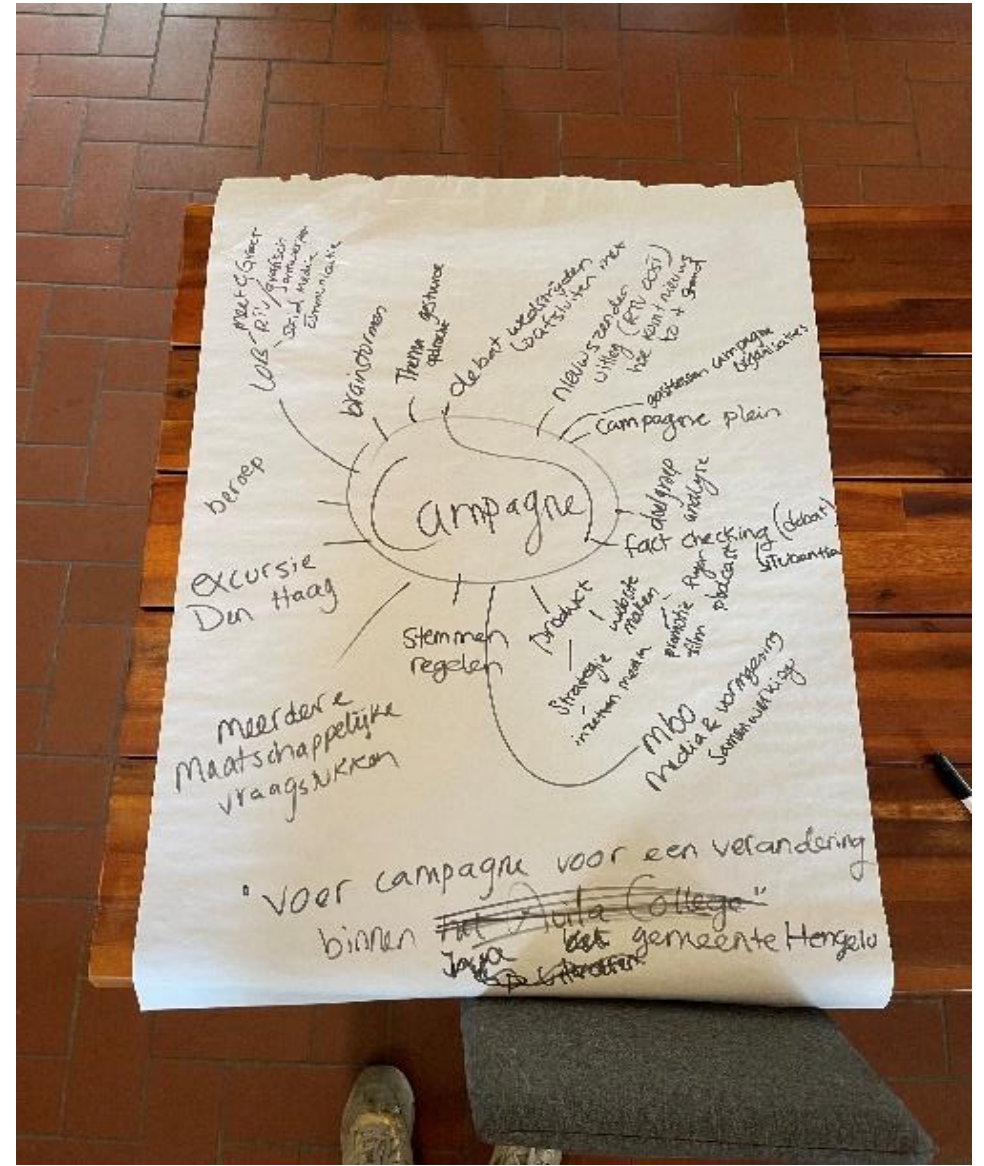 Campagne
LOB
meet & Greet
RTV / grafisch
vormgever
social media
communicatie
brainstormen
Thema gestuurde
debat wedstrijden
afsluiten met
nieuwszender
uitleg (RTV oost)
hoe komt nieuws
tot stand
gastlessen campagne
organisaties
campagne plein
doelgroep
analyse
fact checking (debat)
product
website
maken
promotie
film
flyer
podcast
strategie
inzetten media
mbo
media & vormgeving
samenwerking
stemmen
regelen
meerdere
maatschappelijke
vraagstukken
excursie
Den Haag
beroep
"Voer campagne voor een verandering
binnen het Avila College"
gemeente Hengelo